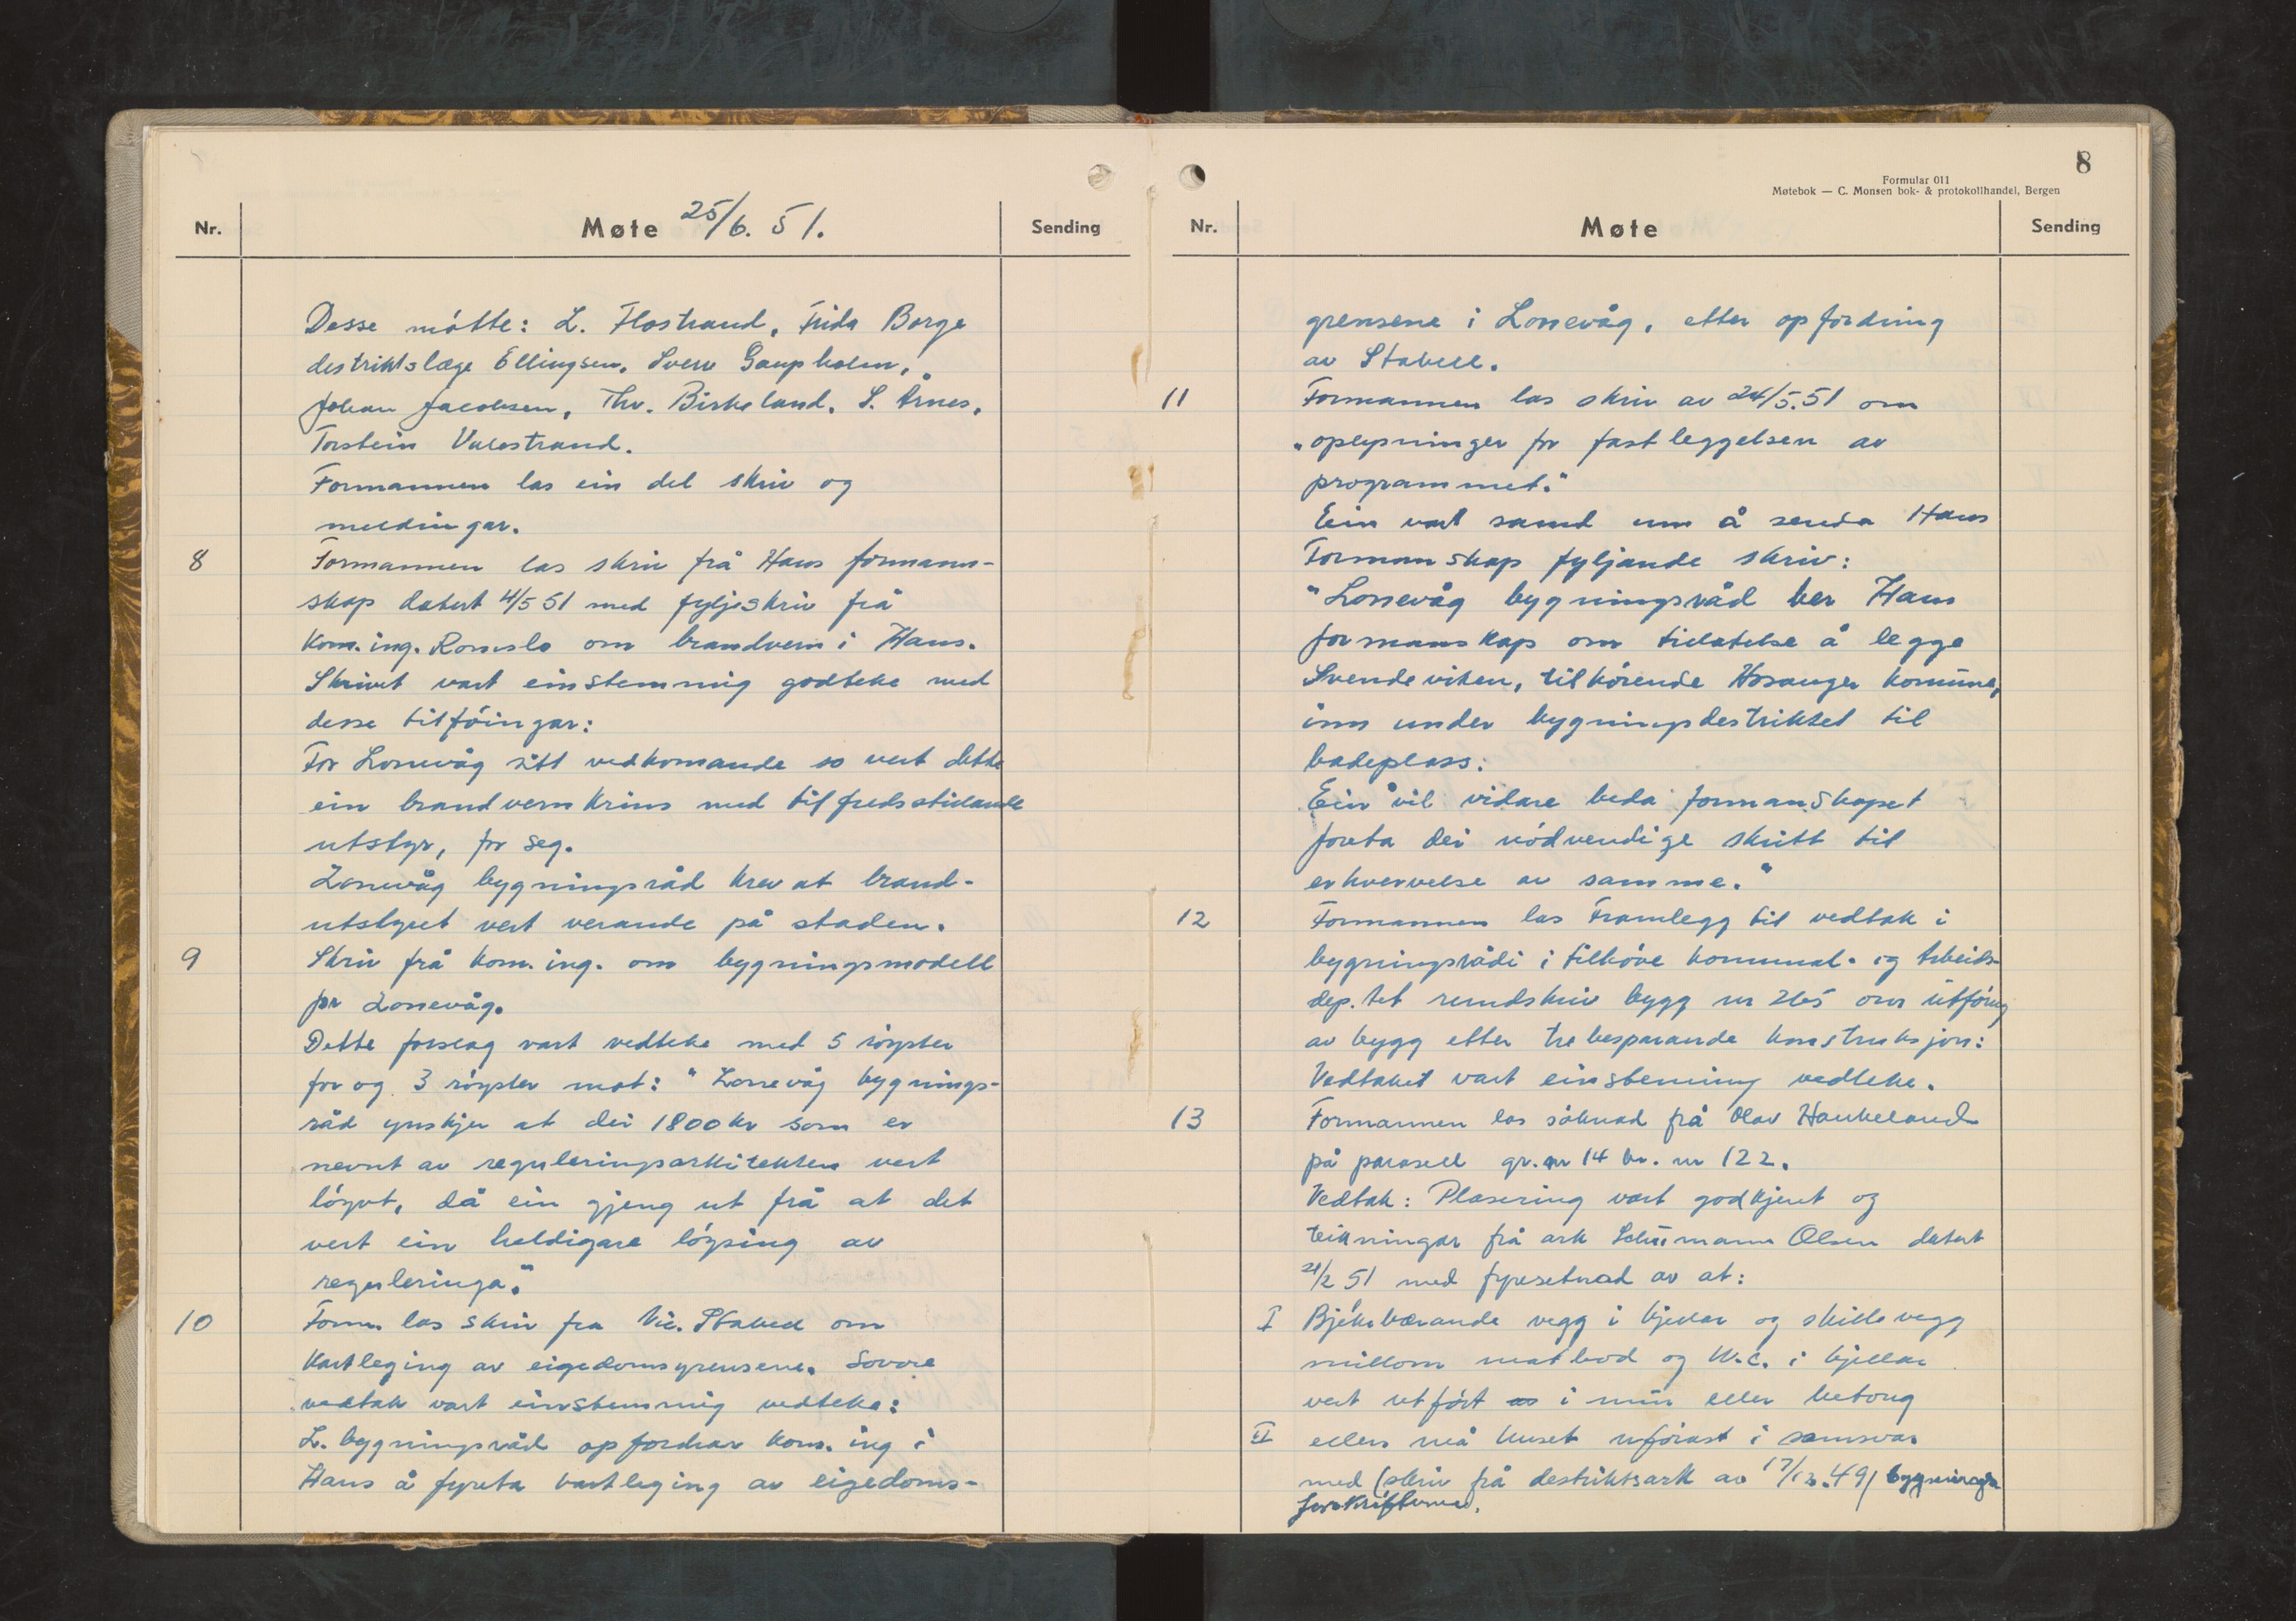 Nr.
Møte 25/6. 51.
Sending
Desse møtte: L. Flostrand, Frida Borge
destriktslæge Ellingsen, Sverr Gaupholm,
Johan Jacobsen, Thv. Birkeland, S. Årnes,
Torstein Valestrand.
Formannen las ein del skriv og
meldingar.
8 Formannen las skriv frå Haus formann-
skap datert 4/5 51 med fyljeskriv frå
Kom. ing. Romslo om brandvern i Haus.
Skrivet vart einstemmig godteke med
desse tilföingar:
For Lonevåg sitt vedkomande so vert dette
ein brandvernkrins med tilfredsstillande
utstyr, for seg.
Lonevåg bygningsråd krev at brand-
utstyret vert verande på staden.
9 Skriv frå kom. ing. om bygningsmodell
for Lonevåg.
Dette forslag vart vedteke med 5 röyster
for og 3 röyster mot: "Lonevåg bygnings-
råd ynskjer at dei 1800 kr som er
nevnt av reguleringsarkitekten vert
löyvt, då ein gjeng ut frå at det
vert ein heldigare löysing av
reguleringa."
10 Form. las skriv fra Vic. Stabell om
kartleging av eigedomsgrensene. Sovore
vedtak vart einstemmig vedteke:
L. bygningsråd opfordrar kom. ing i
Haus å fyreta kartleging av eigedoms-
8
Formular 011
Møtebok — C. Monsen bok- & protokollhandel, Bergen
Nr.
Møte
Sending
grensene i Lonevåg, etter opfordring
av Stabell.
11 Formannen las skriv av 24/5.51 om
"oplysninger for fastleggelsen av
programmet."
Ein vart samd um å senda Haus
Formanskap fyljande skriv:
"Lonevåg bygningsråd ber Haus
formanskap om tillatelse å legge
Svendeviken, tilhörende Hosanger komune,
inn under bygningsdestriktet til
badeplass.
Ein vil vidare beda formanskapet
foreta dei nödvendige skritt til
erhvervelse av samme."
12 Formannen las Framlegg til vedtak i
bygningsrådi i tilhöve komunal- og Arbeids-
dep.tet rundskriv bygg nr 265 om utföring
av bygg etter trebesparande konstruksjon:
Vedtaket vart einstemmig vedteke.
13 Formannen las söknad frå Olav Haukeland
på parasell gr. nr 14 br. nr 122.
Vedtak: Plasering vart godkjent og
teikningar frå ark Schumann Olsen datert
21/2 51 med fyresetnad av at:
I Bjelkebærande vegg i kjellar og skillevegg
millom matbod og W.C. i kjellar
vert utfört as i mur eller betong
II ellers må huset uförast i samsvar
med (skriv frå destriktsark av 17/12.49) bygnings
forskriftene.